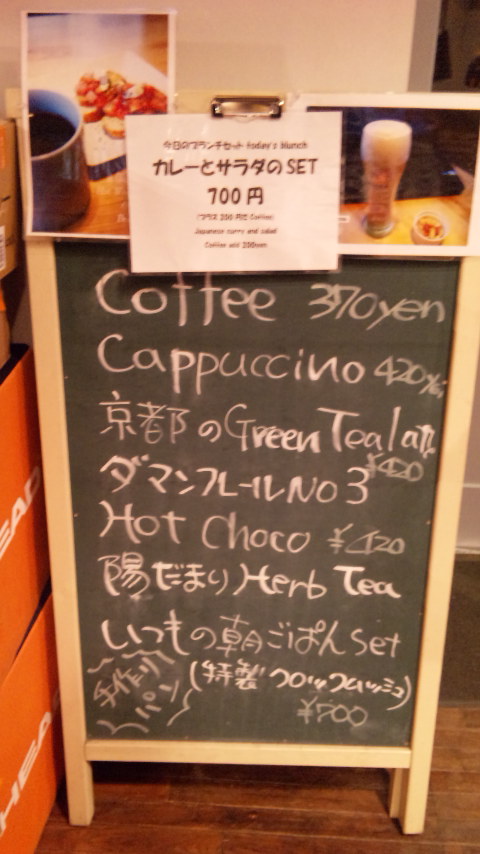 今日のブランチセット today's blunch
カレーとサラダのSET
700円
(プラス 200円で Coffee)
Japanese curry and salad
Coffee add 200yen
Coffee 370yen
Cappuccino 420yen
京都のGreen Tea latte
¥420
ダマンフレールNo3
Hot Choco ¥420
陽だまり Herb Tea
いつもの朝ごぱん set
手作りパン
(特製クロックムッシュ)
¥500
HEAD
HEAD